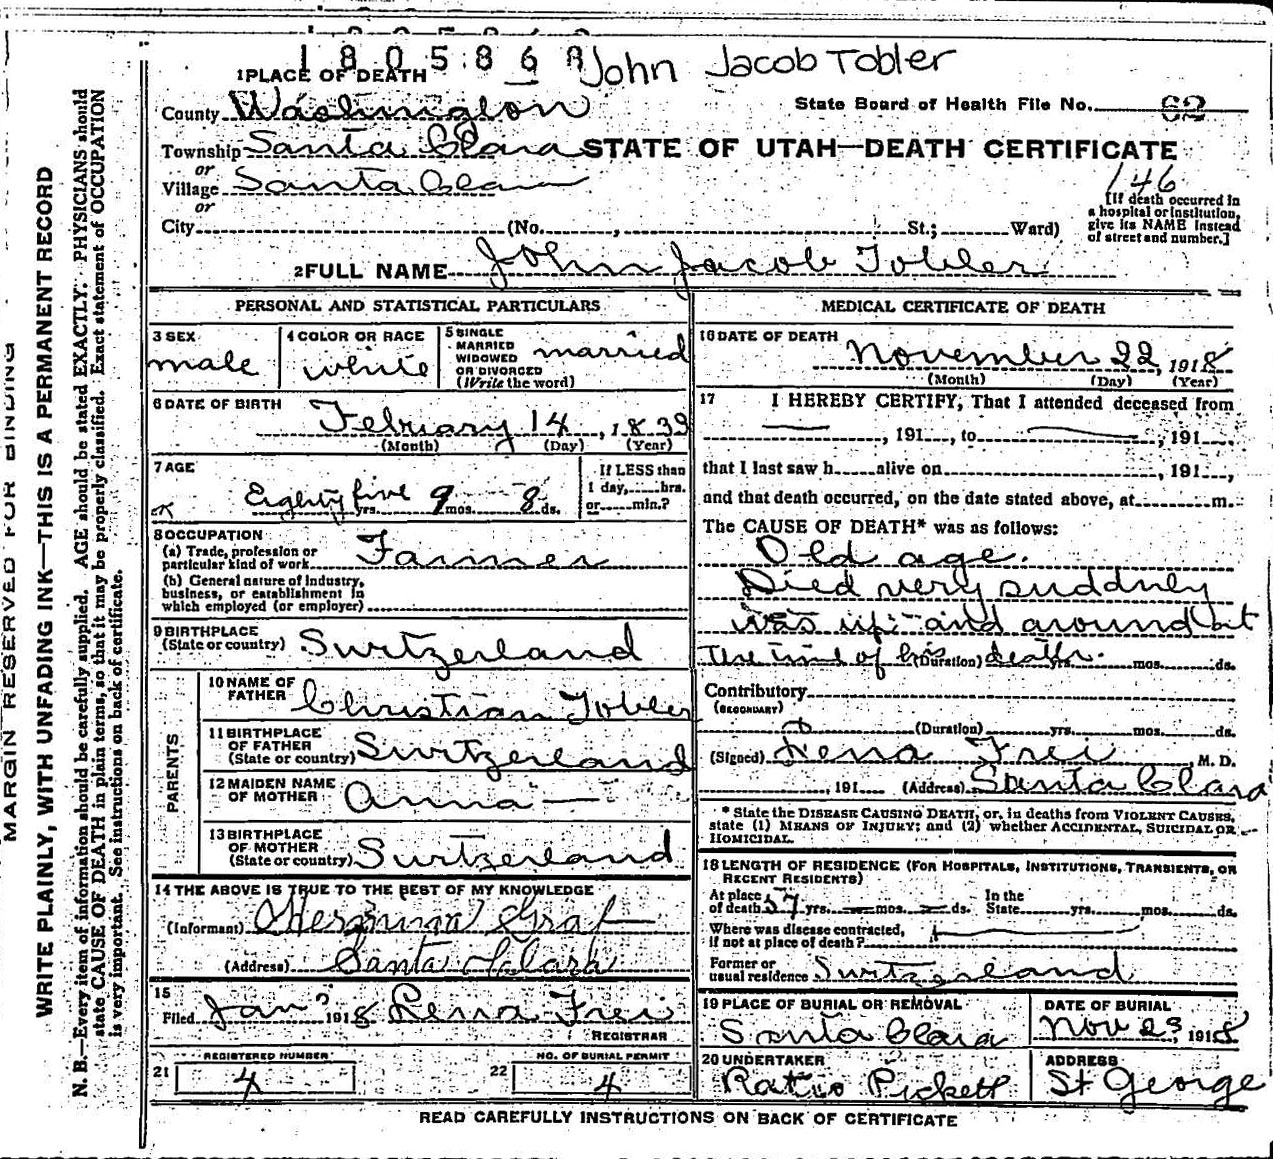 180586 John Jacob Tobler
1 PLACE OF DEATH
County Washington
State Board of Health File No. 62
Township Santa Clara
STATE OF UTAH—DEATH CERTIFICATE
or
Village Santa Clara
146
or
City (No. , St.; Ward)
[If death occurred in
a hospital or institution,
give its NAME instead
of street and number.]
2 FULL NAME John Jacob Tobler
PERSONAL AND STATISTICAL PARTICULARS
3 SEX
male
4 COLOR OR RACE
white
5 SINGLE
MARRIED
WIDOWED
OR DIVORCED
(Write the word)
married
6 DATE OF BIRTH
February 14, 1833
(Month) (Day) (Year)
7 AGE
Eighty five yrs. 9 mos. 8 ds.
If LESS than
1 day, hrs.
or min.?
8 OCCUPATION
(a) Trade, profession or
particular kind of work Farmer
(b) General nature of industry,
business, or establishment in
which employed (or employer)
9 BIRTHPLACE
(State or country) Swtzerland
PARENTS
10 NAME OF
FATHER Christian Tobler
11 BIRTHPLACE
OF FATHER
(State or country) Swtzerland
12 MAIDEN NAME
OF MOTHER Anna —
13 BIRTHPLACE
OF MOTHER
(State or country) Swtzerland
14 THE ABOVE IS TRUE TO THE BEST OF MY KNOWLEDGE
(Informant) Hermina Graf
(Address) Santa Clara
15
Filed Jan 1918 Rena Frei
REGISTRAR
21 REGISTERED NUMBER
4
22 NO. OF BURIAL PERMIT
4
MEDICAL CERTIFICATE OF DEATH
16 DATE OF DEATH
November 22, 1918
(Month) (Day) (Year)
17 I HEREBY CERTIFY, That I attended deceased from
, 191 , to , 191 ,
that I last saw h alive on , 191 ,
and that death occurred, on the date stated above, at m.
The CAUSE OF DEATH* was as follows:
Old age.
Died very suddnly
was up and around at
the time of his death.
(Duration) mos. ds.
Contributory
(SECONDARY)
(Duration) yrs. mos. ds.
(Signed) Rena Frei M. D.
, 191 (Address) Santa Clara
* State the DISEASE CAUSING DEATH, or, in deaths from VIOLENT CAUSES,
state (1) MEANS OF INJURY; and (2) whether ACCIDENTAL, SUICIDAL OR
HOMICIDAL.
18 LENGTH OF RESIDENCE (FOR HOSPITALS, INSTITUTIONS, TRANSIENTS, OR
RECENT RESIDENTS)
At place
of death 57 yrs. mos. ds.
In the
State yrs. mos. ds.
Where was disease contracted,
if not at place of death?
Former or
usual residence Swtzerland
19 PLACE OF BURIAL OR REMOVAL
Santa Clara
DATE OF BURIAL
Nov 23, 1918
20 UNDERTAKER
Ratio Pickett
ADDRESS
St George
READ CAREFULLY INSTRUCTIONS ON BACK OF CERTIFICATE
MARGIN RESERVED FOR BINDING
WRITE PLAINLY, WITH UNFADING INK—THIS IS A PERMANENT RECORD
N. B.—Every item of information should be carefully supplied. AGE should be stated EXACTLY. PHYSICIANS should
state CAUSE OF DEATH in plain terms, so that it may be properly classified. Exact statement of OCCUPATION
is very important. See instructions on back of certificate.